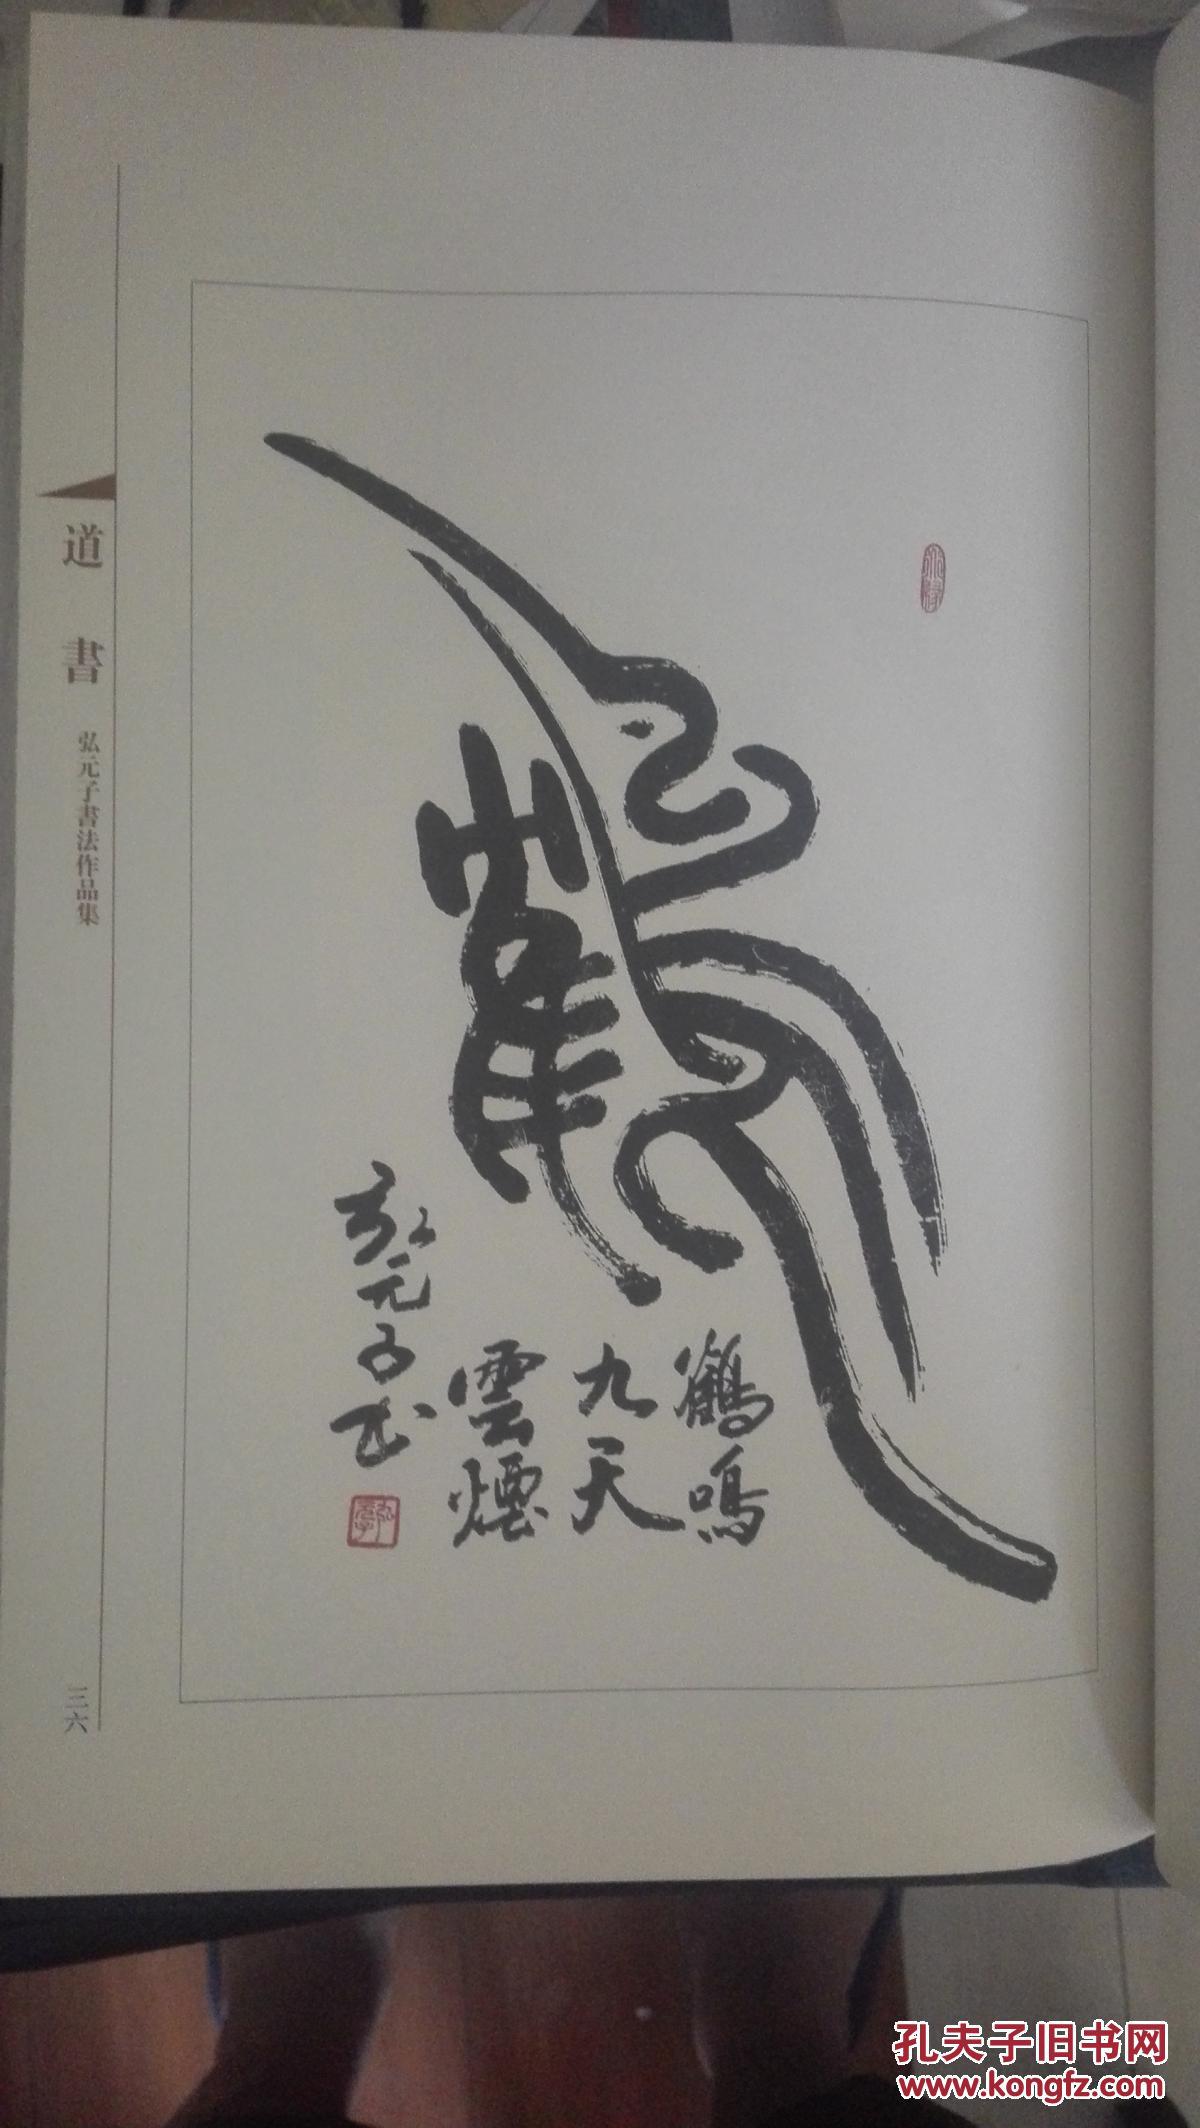 鶴
鶴鳴
九天
雲煙
弘元子書
道書
弘元子書法作品集
三六
孔夫子旧书网
www.kongfz.com